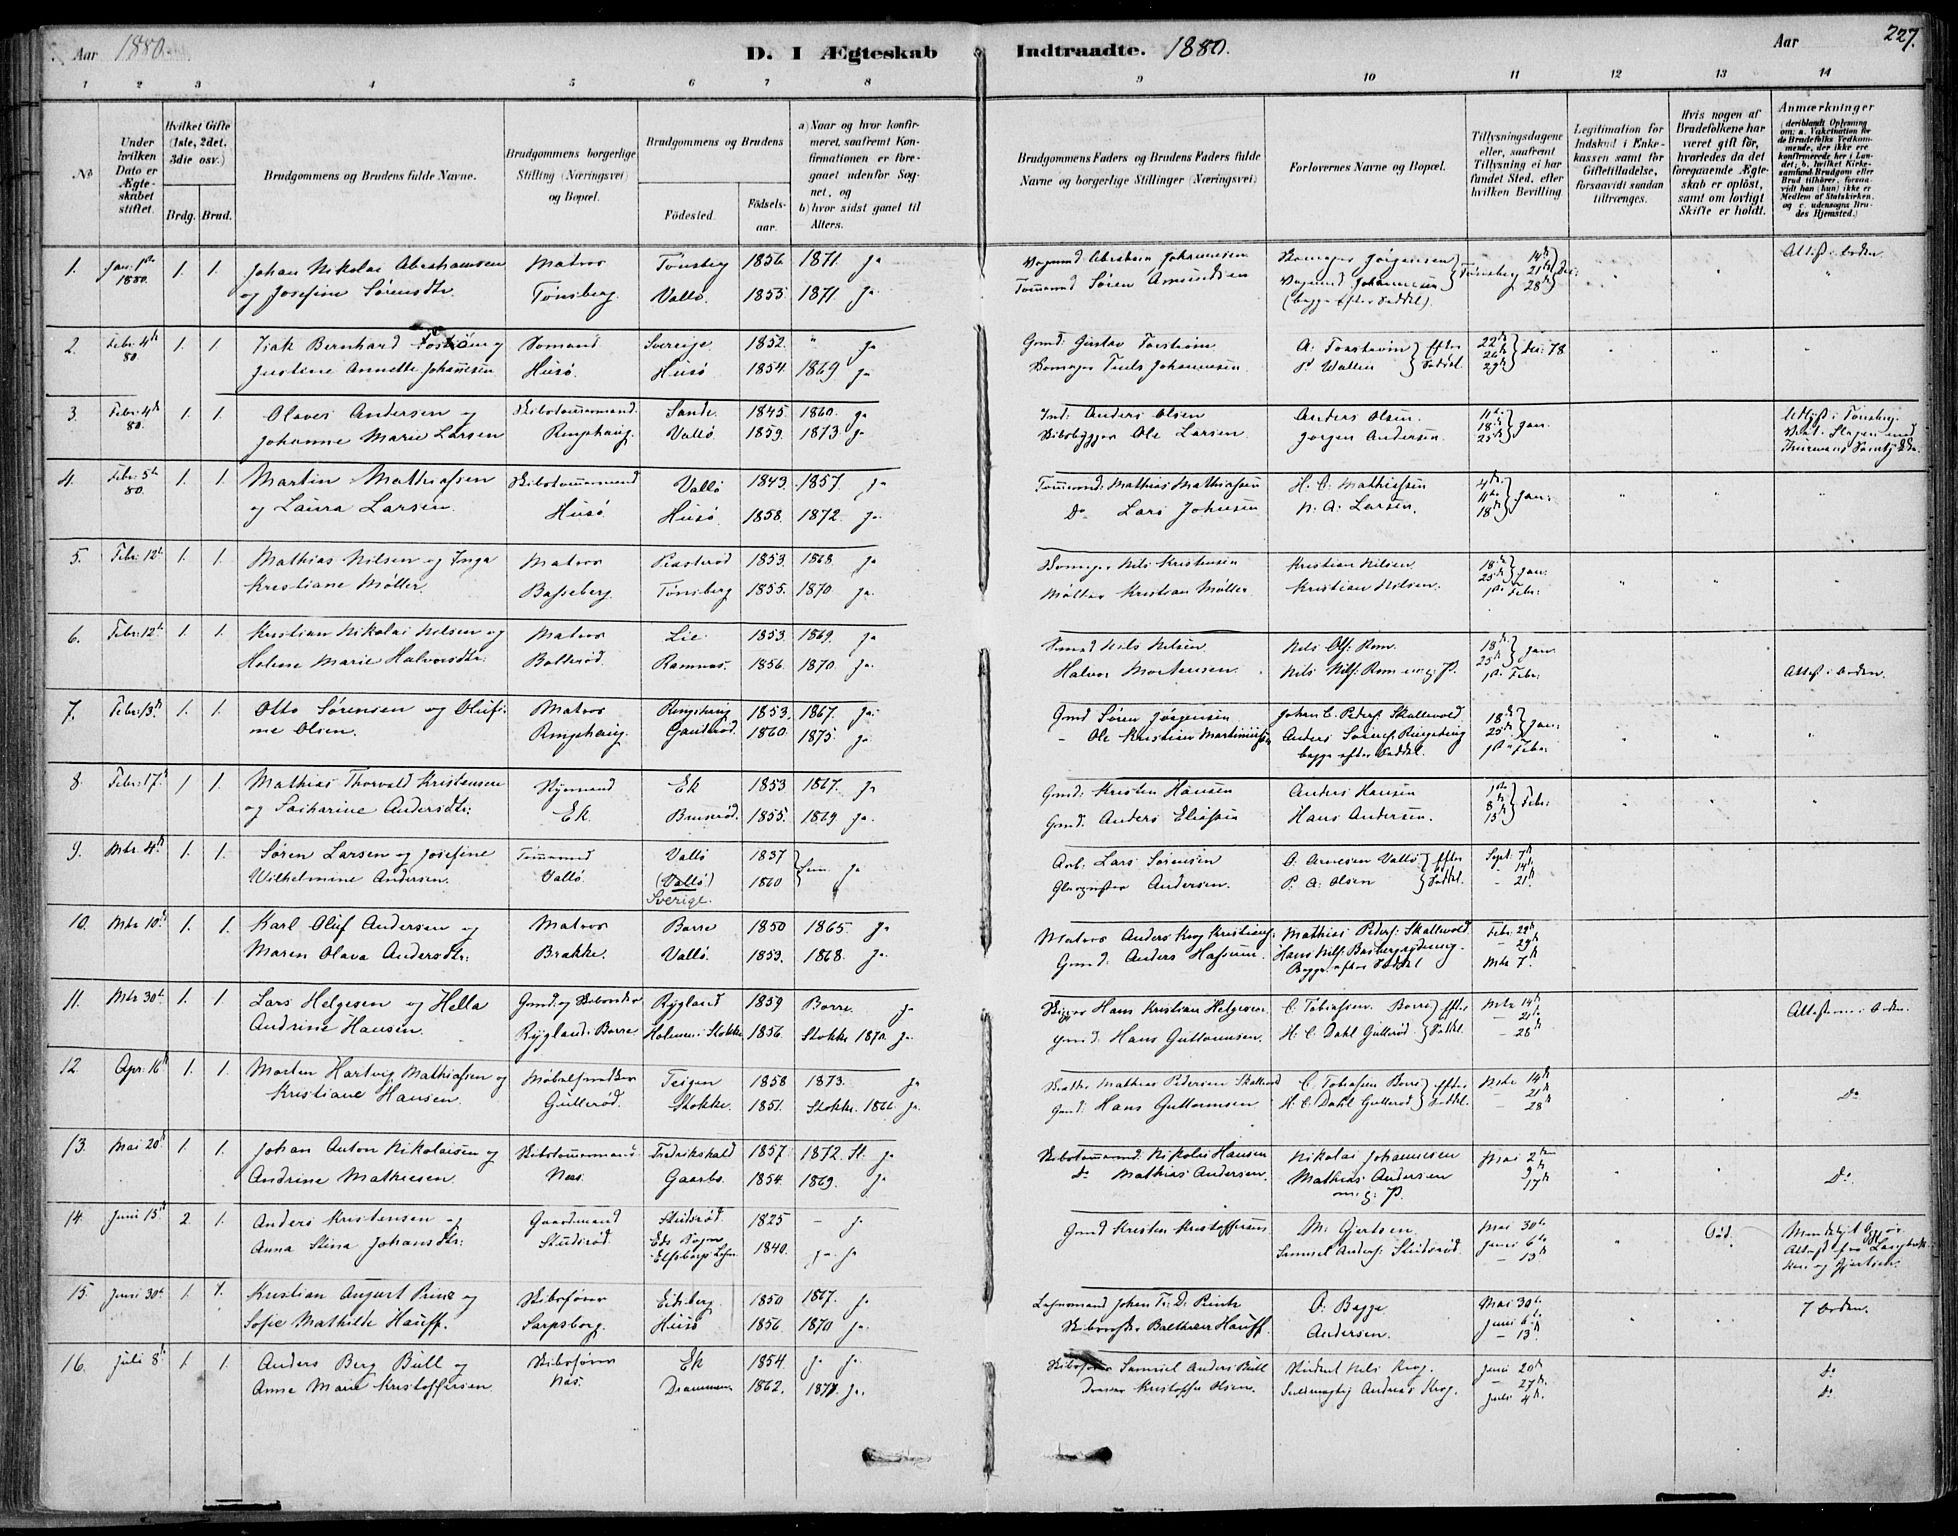 Aar 1880.
D. I Ægteskab Indtraadte. 1880.
Aar
227.
1 2 3 4 5 6 7 8 9 10 11 12 13 14
No
Under hvilken Dato er Ægteskabet stiftet.
Hvilket Gifte (1ste, 2det, 3die osv.)
Brdg. Brud.
Brudgommens og Brudens fulde Navne.
Brudgommens borgerlige Stilling (Næringsvei) og Bopæl.
Brudgommens og Brudens
Fødested. Fødselsaar.
a) Naar og hvor konfirmeret, saafremt Konfirmationen er foregaaet udenfor Sognet, og
b) hvor sidst gaaet til Alters.
Brudgommens Faders og Brudens Faders fulde Navne og borgerlige Stillinger (Næringsvei)
Forlovernes Navne og Bopæl.
Tillysningsdagene eller, saafremt Tillysning ei har fundet Sted, efter hvilken Bevilling.
Legitimation for Indskud i Enkekassen samt for Giftetilladelse, forsaavidt saadan tiltrænges.
Hvis nogen af Brudefolkene har været gift før, hvorledes da det foregaaende Ægteskab er opløst, samt om lovligt Skifte er holdt.
Anmærkninger (deriblandt Oplysning om: a. Vakcination for de Brudefolks Vedkommende, der ikke ere konfirmerede her i Landet; b. hvilket Kirkesamfund Brudgom eller Brud tilhører, forsaavidt han (hun) ikke er Medlem af Statskirken, og c. udensogns Brudes Hjemsted.)
1. Jan: 1ste 1. 1. Johan Nikolai Abrahamsen Matros Tönsberg 1856. 1871. ja Abraham Johannesen Jörgensen Tönsberg 14de Attest i Orden.
1880. og Josefine Sørensdtr. Tönsberg. Vallö. 1855. 1871. ja. Tömmermd Sören Amundsen Johannesen 21de Dec:
(begge efter Seddel). 28de
2. Febr. 4de 1. 1. Isak Bernhard og Sömand Sverige 1852. " ja Gmd: Gustav A: efter 22de
80 Justine Annette Johannesen Husö. Husö 1854 1869 ja Johannesen. P Wallin Seddel. 29de Dec: 78
3. Febr: 4de 1. 1. Olaves Andersen og Skibstömmermand. Sande. 1845. 1860. ja Ind: Anders Olsen Anders Olsen. 11te
80. Johanne Marie Larsen Ringshaug. Vallö. 1859. 1873. ja. Skibsbygger Ole Larsen. Jörgen Andersen. 18de Jan:
25de
4. Febr: 5te 1. 1. Martin Mathiassen Skibstömmermand Vallö 1843. 1857. ja Tömmermd: Mathias Mathiassen H. C. Mathiassen 4de
80. og Laura Larsen. Husö Husö. 1858. 1872. ja. Do Lars Johnsen N. A. Larsen. 11te Jan:
18de
5. Febr: 12te 1. 1. Mathias Nilsen og Inga Matros 1853. 1868. ja Nils Kristensen Kristian Nilsen. 18de
Kristiane Møller. Basseberg. Tönsberg 1855. 1870. ja. Möller Kristian Møller. Kristian Nilsen. 25de Jan:
1ste Febr:
6. Febr: 12te 1. 1. Kristian Nikolai Nilsen og Matros Lie. 1853 1869. ja Nils Nilsen Nils Ols: Rom. 18de
Helene Marie Halvorsdtr: Bolterød. Ramnæs. 1856. 1870. ja. Halvor Mortensen. Nils Nils: Rom m. g. P. 25de Jan: Attest i Orden.
1ste Febr:
7. Febr: 13de 1. 1. Otto Sørensen og Olufi- Matros Ringshaug 1853. 1867. ja. Gmd Søren Jørgensen Johan C. Peders: Skallevold 18de
ne Olsen. Ringshaug. Gauterød. 1860. 1875. ja Ole Kristian Anders 25de Jan:
begge efter Seddel. 1ste Febr:
8. Febr: 17de 1 1. Mathias Thorvald Kristensen Ek 1853 1867. ja Gmd: Kristen Hansen Anders Hansen 1ste
og Sakarine Andersdtr: Ek. Bruserød. 1855. 1869. ja. Gmd. Anders Eliassen Hans Andersen. 8de Febr:
15de
9. Mts 4de 1. 1. Søren Larsen og Josefine Tömmermd Vallö 1837 Sem. ja Arb: Lars Sørensen O: Arnesen Vallö efter Sept: 7de
Wilhelmine Andersen. Vallö. (Vallö) 1860 Glasmester Andersen. P. A: Olsen Seddel. - 14de
Sverige. - 21de
10. Mts 10de 1. 1. Karl Oluf Andersen og Matros Borre 1850 1865. ja Matros Anders Krog Mathias Peders: Skallevold. Febr: 22de
Maren Olava Andersdtr: Brække. Vallö. 1853. 1868. ja. Gmd: Anders Hans Nils: - 29de
Begge efter Seddel Mts 7de
11. Mts 30te 1. 1. Lars Helgesen og Hella Gmd. og Rygland 1859 Borre. ja Skipper Hans Kristian Helgesen C. Tobiassen. Borre efter Mts 14de
Andrine Hansen. Rygland: Borre Holmen: Stokke 1856. Stokke 1870. ja. Gmd. Hans Guttormsen. H. C. Dahl Gullerød. Seddel. - 21de
- 28de
12 Apr: 16de 1. 1. Morten Hartvig Mathiassen og Möbelsnedker Teigen 1858 1873. ja Mathias Pedersen Skallevold C. Tobiassen Borre efter Mts 14de Do
Kristiane Hansen. Gullerød. Stokke. 1851. Stokke. 1866. ja. Gmd: Hans Guttormsen H. C. Dahl Gullerød Seddel. - 21de
- 28de
13. Mai 20de 1. 1. Johan Anton Nikolaisen og Skibstömmermand Fredrikshald 1857. 1872. St. ja Skibstömmermd: Nikolai Hansen Nikolai Johannesen Mai 2den
Andrine Mathiesen. Næs. Gaarbo. 1854. 1869. ja do Mathias Andersen. Mathias Andersen 9de Do
m: g: P. 17de
14. Juni 15de 2. 1. Anders Kristensen og Gaardmand Skidsrød. 1825 - ja Gmd Kristen Kristoffersen M: Gjertsen. Mai 30te Död.
Anna Stina Johansdtr: Eds Sogn 1840. ja. ja Samuel Anders: Juni 6te
Elfsborgs Lehn - 13de
15. Juni 30te 1. 1. Kristian August og Skibsfører Eidsberg. 1850 1867. ja Lehnsmand Johan Fr: D. O: Bagge Mai 30te i Orden.
Sofie Mathilde Hauff. Sarpsborg. Husö 1856 1870 ja. Balthazar Hauff. Andersen. Juni 6te
- 13de
16. Juli 8de 1. 1. Anders Berg Bull og Skibsfører Ek 1854. ja ja. Skibsfører Samuel Anders Bull Nils Krog. Juni 20de Do
Anne Marie Kristoffersen. Næs. Drammen 1862. 1877. ja. Kristoffer Olsen. Andreas Krog. - 27de Do
Juli 4de